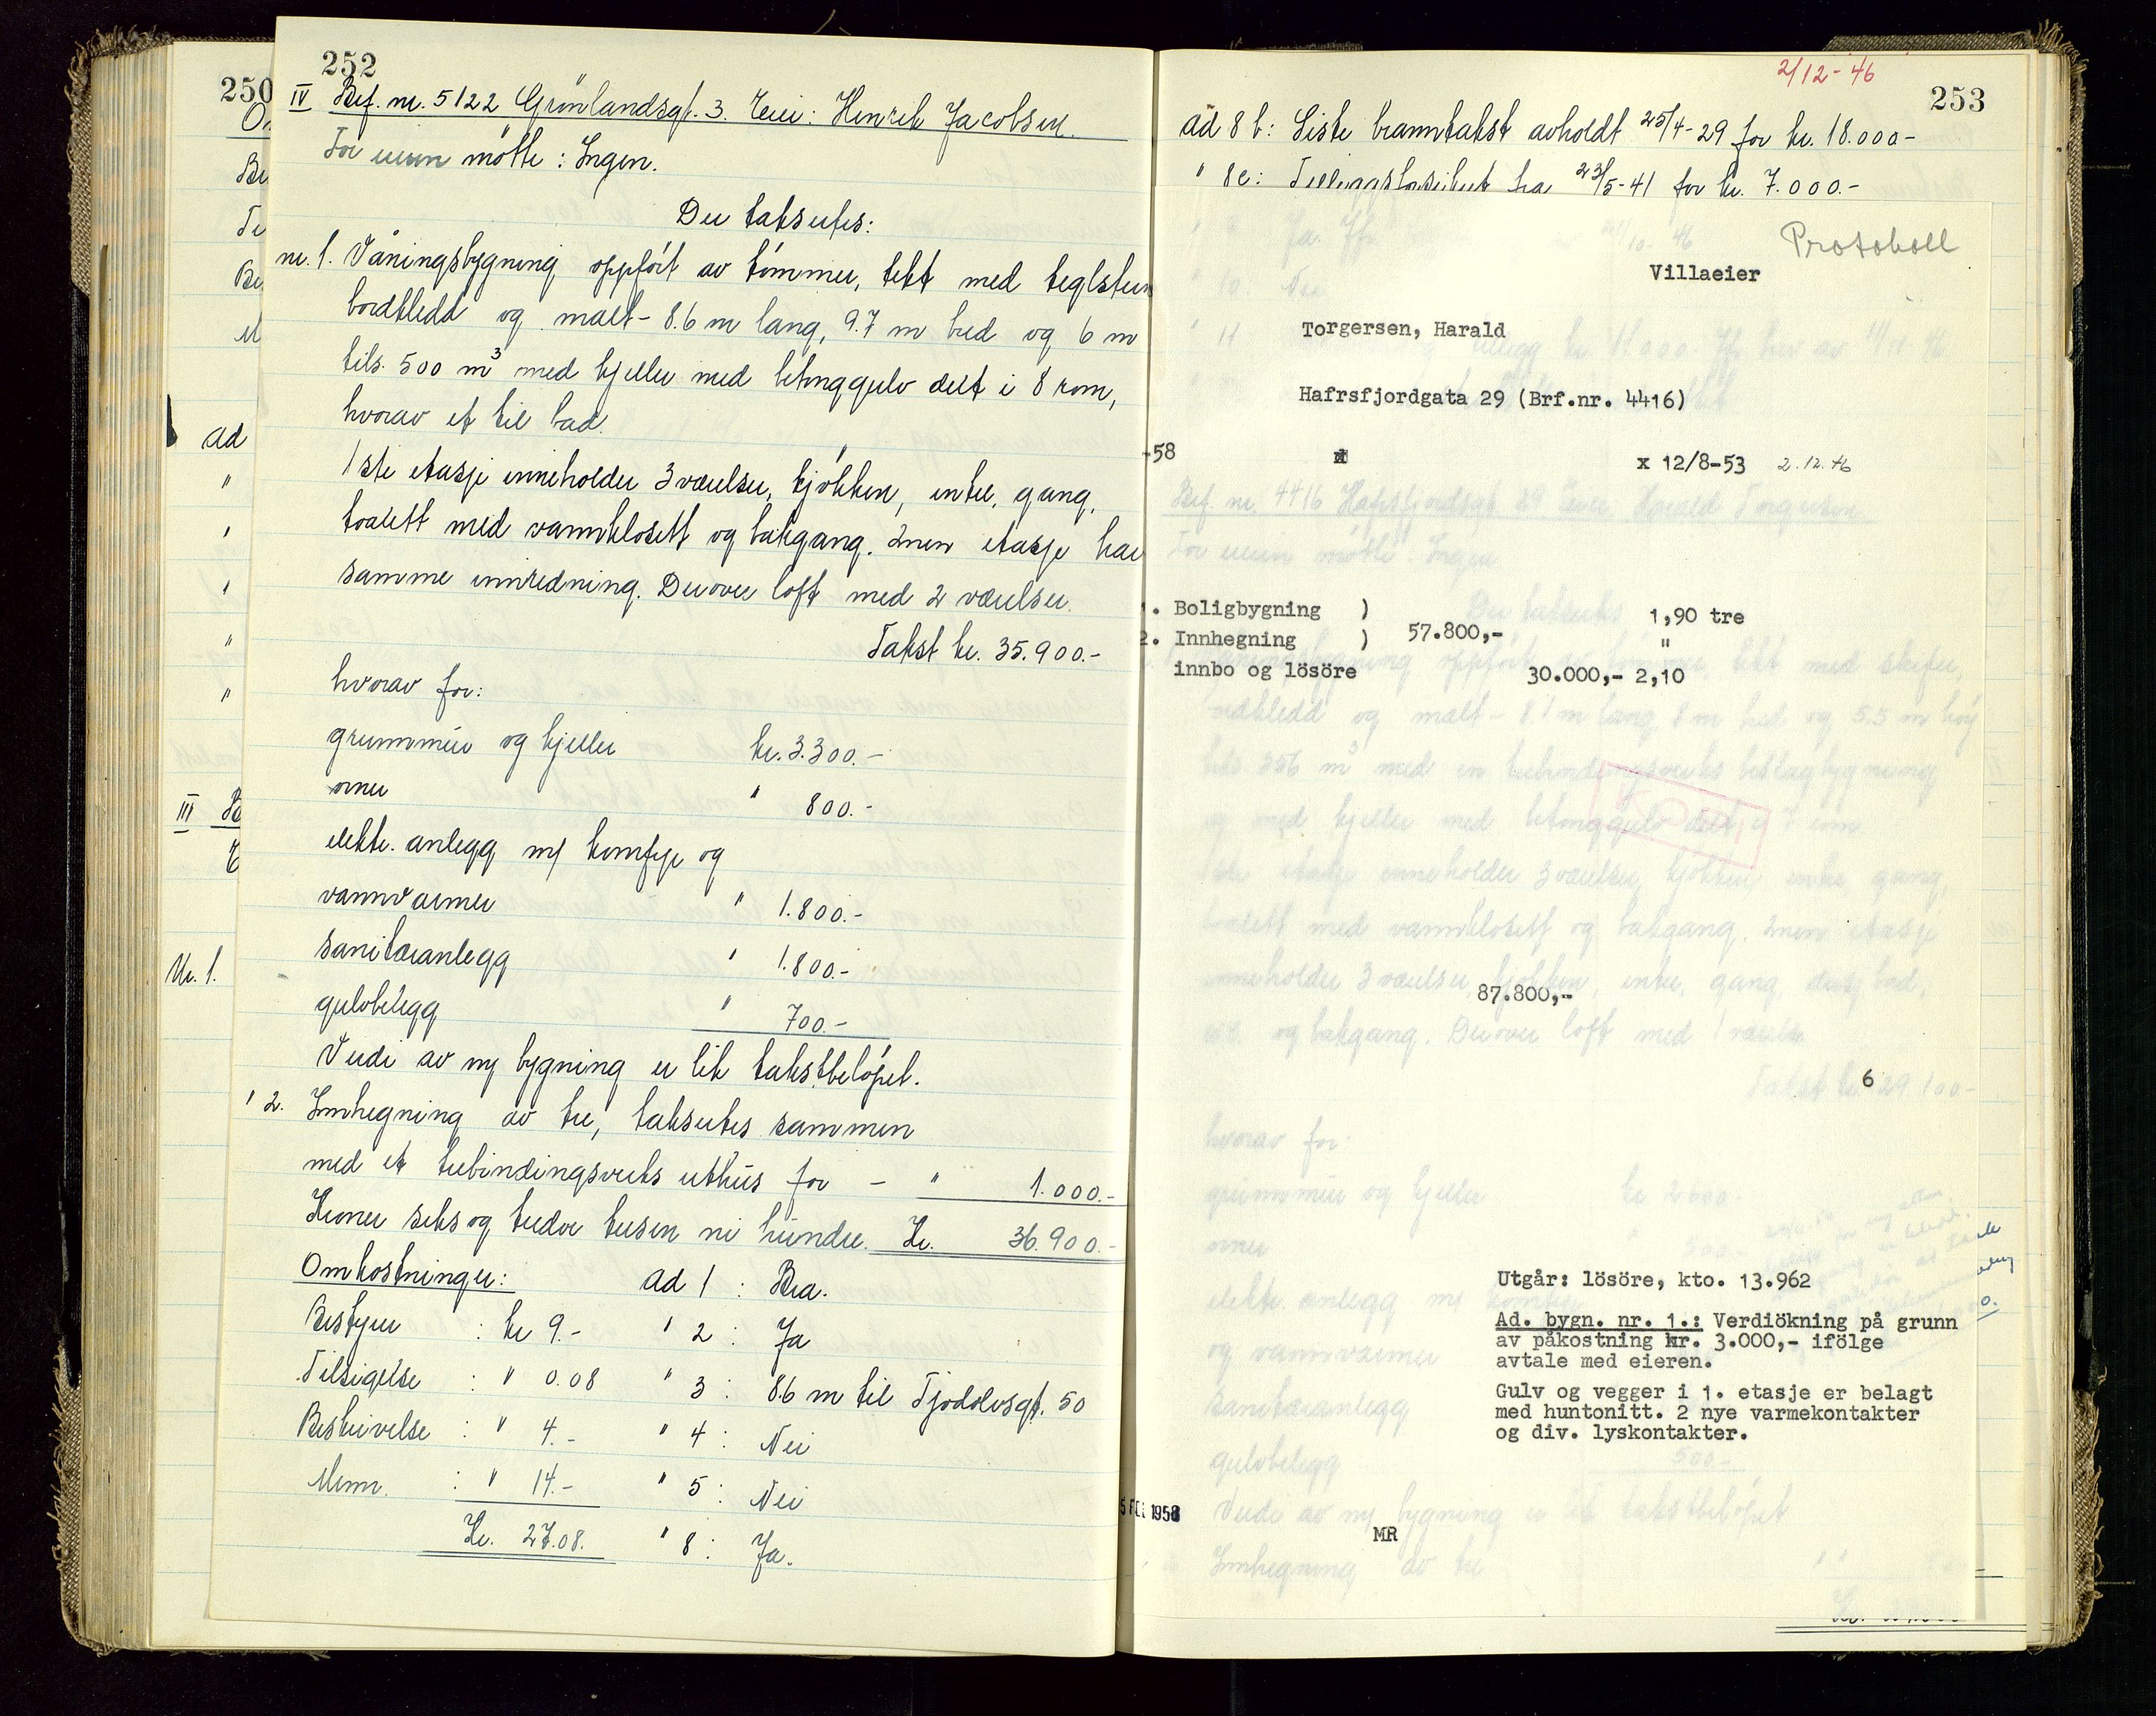 250
252
IV Brf. nr. 5122 Grønlandsgt. 3. Eier: Henrik Jacobsen.
For eieren møtte: Ingen.
Der takseres:
nr. 1. Våningsbygning oppført av tømmer, tekt med teglsten
bordkledd og malt - 8.6 m lang, 9.7 m bred og 6 m
tils. 500 m³ med kjeller med betonggulv delt i 8 rom,
hvorav et til bad.
1ste etasje inneholder 3 værelser, kjøkken, entre, gang,
toalett med vannklosett og bakgang. 2nen etasje har
samme innredning. Derover loft med 2 værelser.
Takst kr. 35.900.-
hvorav for:
grunnmur og kjeller kr. 3.300.-
ovner " 800.-
elektr. anlegg m/ komfyr og
vannvarmer " 1.800.-
sanitæranlegg " 1.800.-
gulvbelegg " 700.-
Verdi av ny bygning er lik takstbeløpet.
" 2. Innhegning av tre, takseres sammen
med et trebindingsverks uthus for - " 1.000.-
Kroner seks og tredve tusen ni hundre. Kr. 36.900.-
Omkostninger: ad 1 : Bra.
Bestyrer : kr 9.- " 2 : Ja
Tilsigelse : " 0.08 " 3 : 8.6 m til Tjodolvsgt. 50
Beskrivelse : " 4.- " 4 : Nei
Menn. : " 14.- " 5 : Nei
Kr. 27.08. " 8 : Ja.
ad
III
Nr. 1.
2/12-46
253
ad 8 b: Siste branntakst avholdt 25/4-29 for kr. 18.000-
" 8c: Tilleggsforsikret fra 23/5-41 for kr. 7.000.-
Protokoll
Villaeier
Torgersen, Harald
Hafrsfjordgata 29 (Brf.nr. 4416)
-58 x 12/8-53 2.12.46
1. Boligbygning ) 1,90 tre
2. Innhegning ) 57.800,- "
innbo og lösöre 30.000,- 2,10
87.800,-
6
Utgår: lösöre, kto. 13.962
Ad. bygn. nr. 1.: Verdiökning på grunn
av påkostning kr. 3.000,- ifölge
avtale med eieren.
Gulv og vegger i 1. etasje er belagt
med huntonitt. 2 nye varmekontakter
og div. lyskontakter.
1958
MR